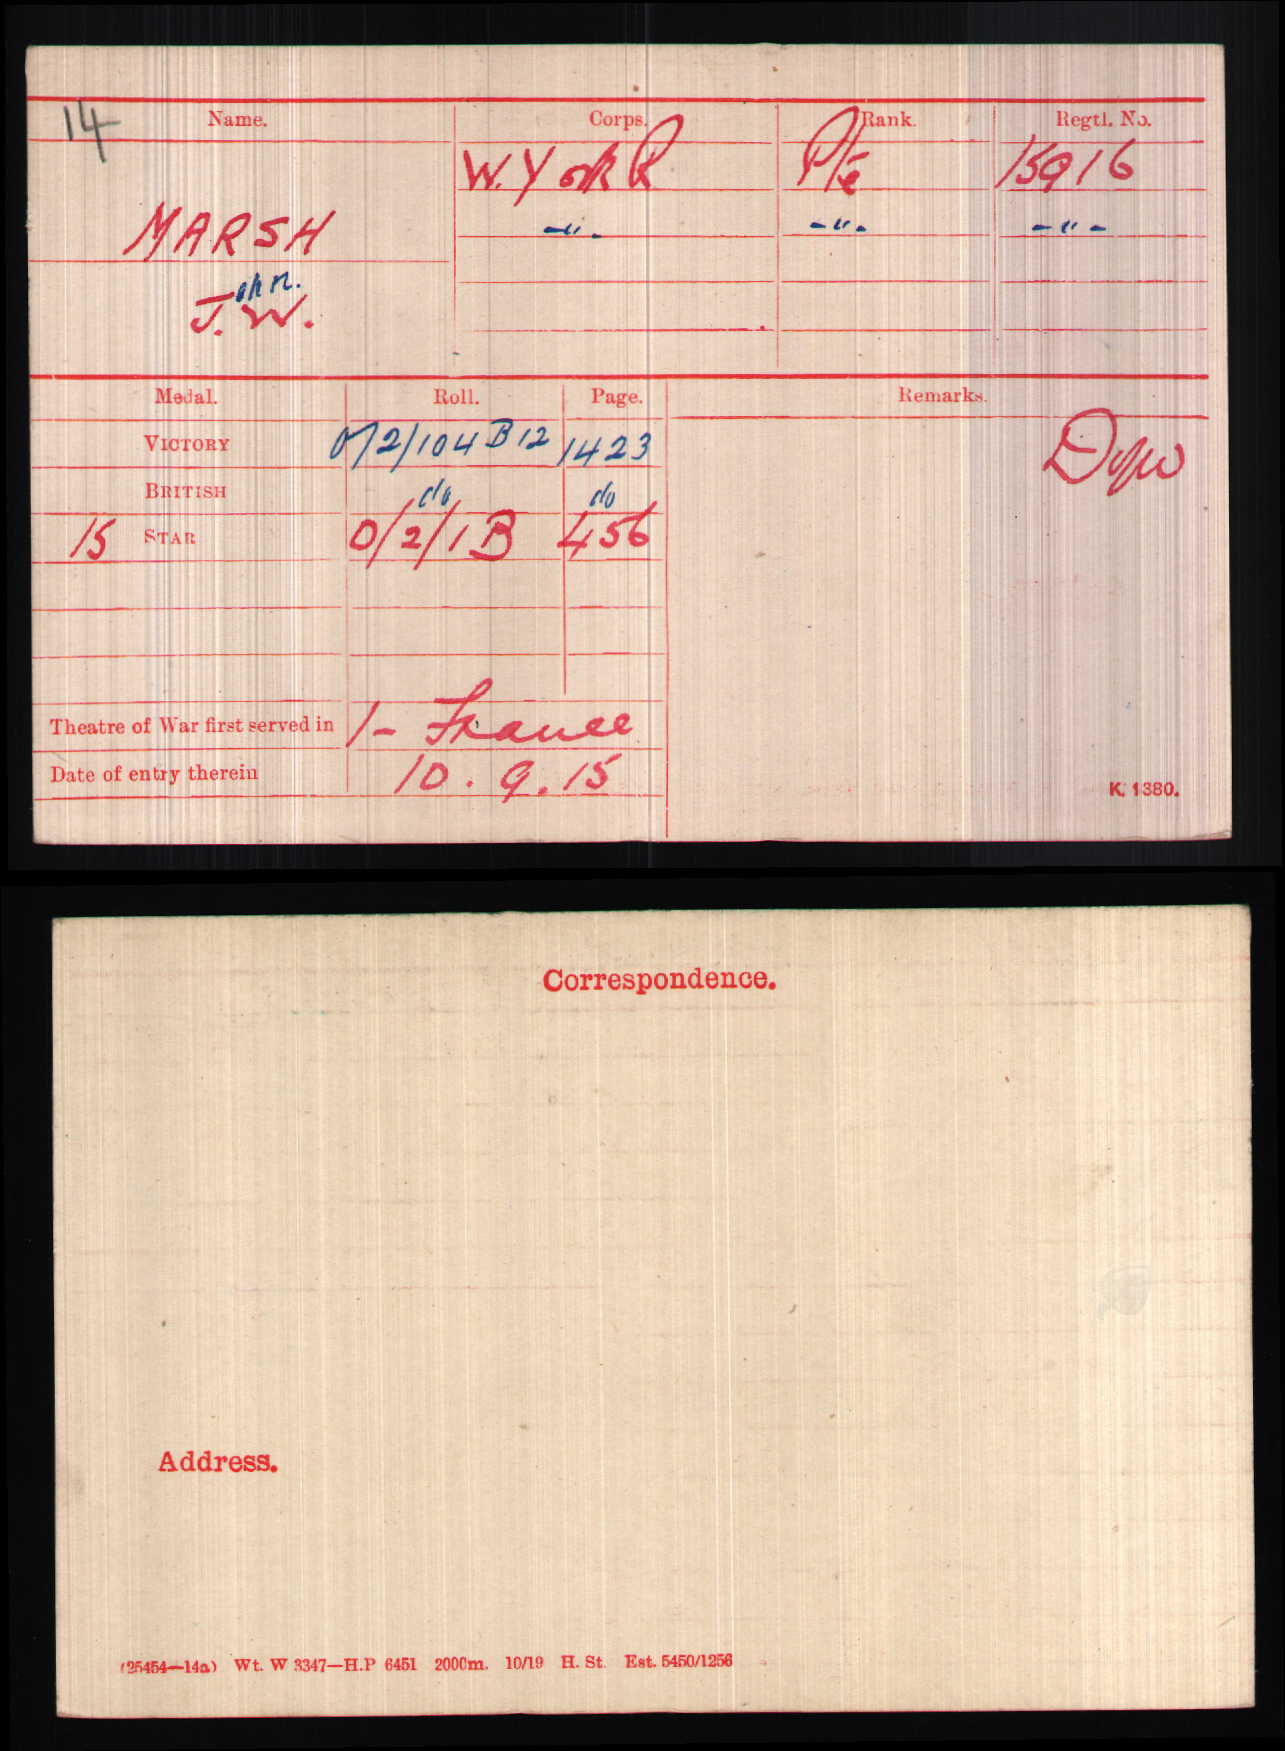 14
Name. Corps. Rank. Regtl. No.
W. York R Pte 15916
MARSH -"- -"- -"-
ohn.
J. W.
Medal. Roll. Page. Remarks.
VICTORY 0/2/104 B 12 1423
BRITISH do do
15 STAR 0/2/1 B 456
Theatre of War first served in 1- France
Date of entry therein 10. 9. 15
K. 1380.
Correspondence.
Address.
(25454—14a) Wt. W 3347—H.P 6451 2000m. 10/19 H. St. Est. 5450/1256